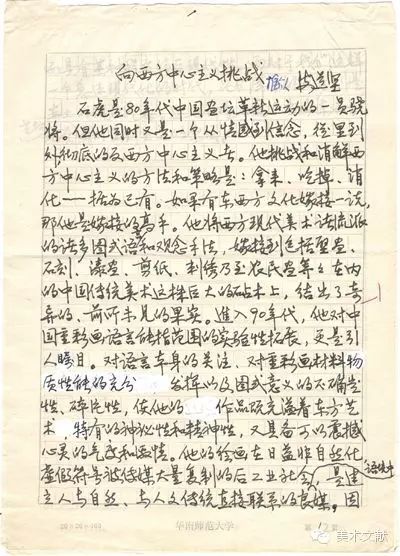 向西方中心主义挑战
皮道坚
石虎是80年代中国画坛革新运动的一员骁
将。但他同时又是一个从情感到信念，从里到
外彻底的反西方中心主义者。他挑战和消解西
方中心主义的方法和策略是：拿来、吃掉、消
化——据为己有。如果有东西方文化嫁接一说，
那他是嫁接的高手。他将西方现代美术诸流派
的诸多图式语和观念手法，嫁接到包括壁画、
石刻、漆画、剪纸、刺绣乃至农民画等等在内
的中国传统美术这株巨大的砧木上，结出了奇
异的、前所未见的果实。进入90年代，他对中
国重彩画语言能指范围的实验性拓展，更是引
人瞩目。对语言本身的关注、对重彩画材料物
质性能的充分 发挥以及图式意义的不确定
性、碎片性，使他的 作品既充溢着东方艺
术 特有的神秘性和精神性，又具备可以震撼
心灵的气度和激情。他的绘画在日益非自然化
虚假符号被传媒大量复制的后工业社会 是建
语境中
立人与自然、与人文传统直接联系的良媒。因
20×20=400
华南师范大学
第 1 页
美术文献